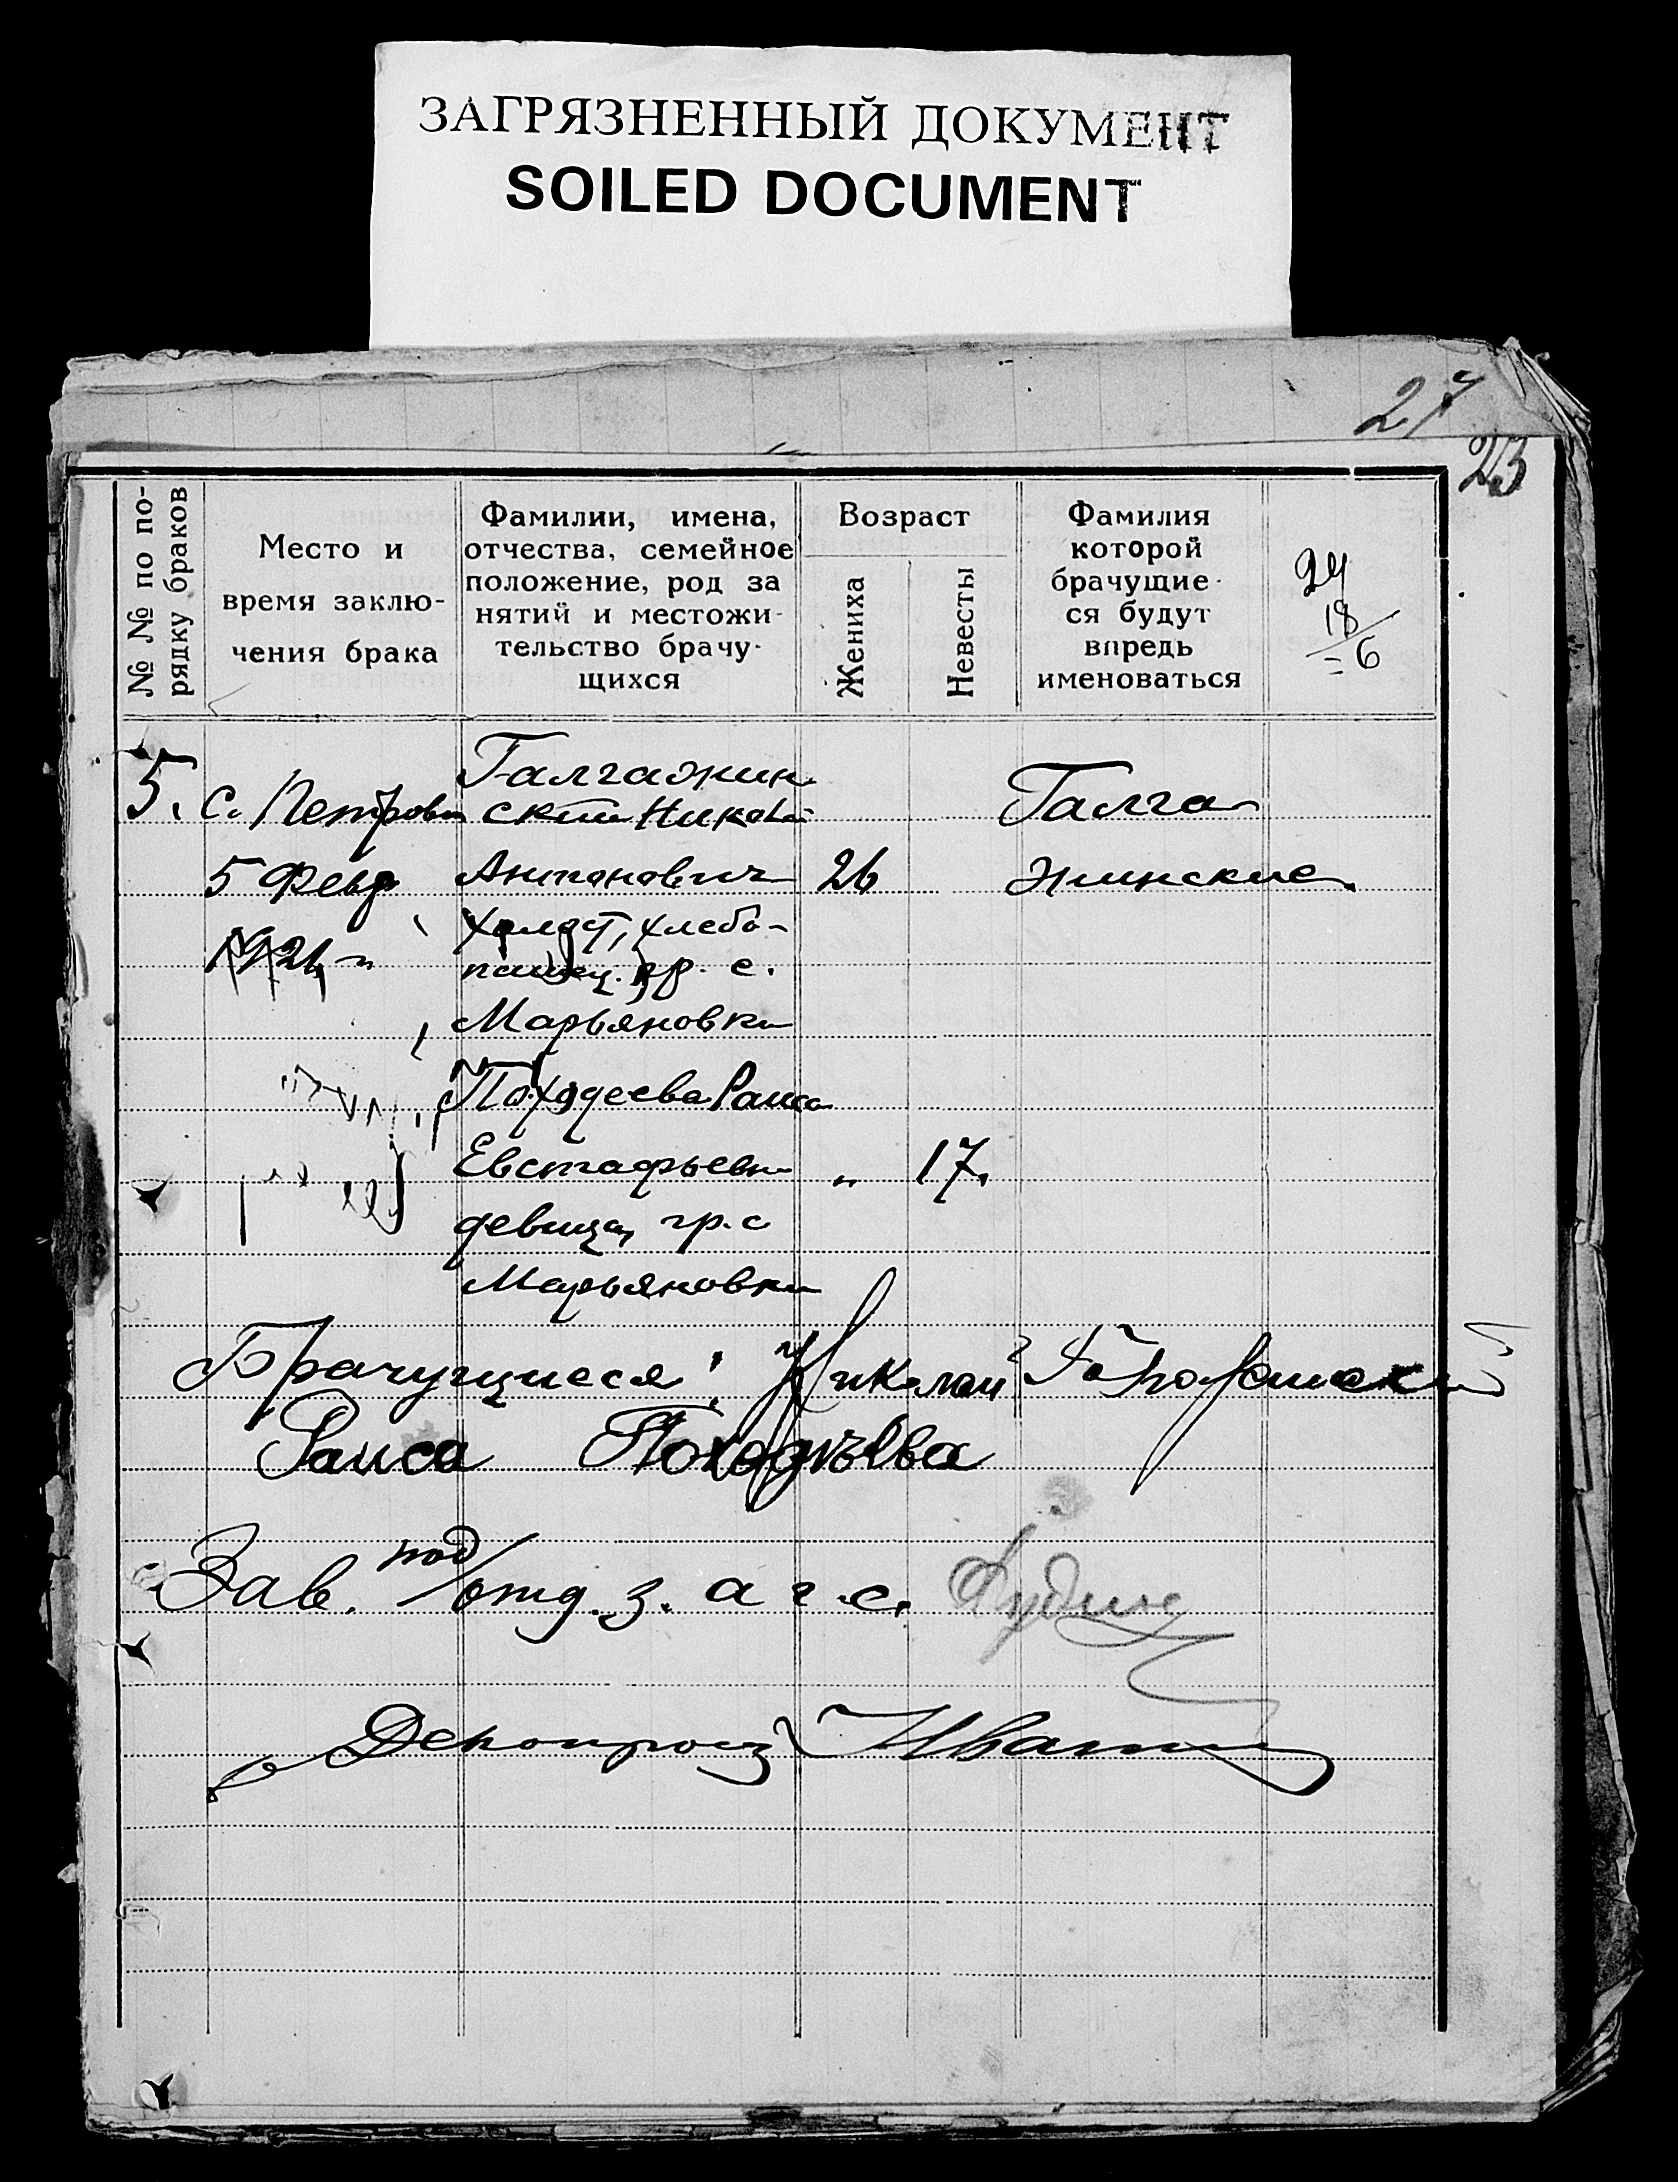 ЗАГРЯЗНЕННЫЙ ДОКУМЕНТ
SOILED DOCUMENT
27
23
№ № по по-
рядку браков
Место и
время заклю-
чения брака
Фамилии, имена,
отчества, семейное
положение, род за
нятий и местожи-
тельство брачу-
щихся
Возраст
Жениха
Невесты
Фамилия
которой
брачущие-
ся будут
впредь
именоваться
24
18
=6
5. С. Петровка
5 Февр
1921 г.
Галгажин
ский Николай
Антонович 26
холост, хлебо-
пашец. гр. с.
Марьяновки
Походеева Раиса
Евстафьевна " 17.
девица, гр. с
Марьяновки
Галга
жинские.
Брачущиеся: Николай
Раиса Походеева
Зав. под/отд. з. а г. с.
Делопроиз